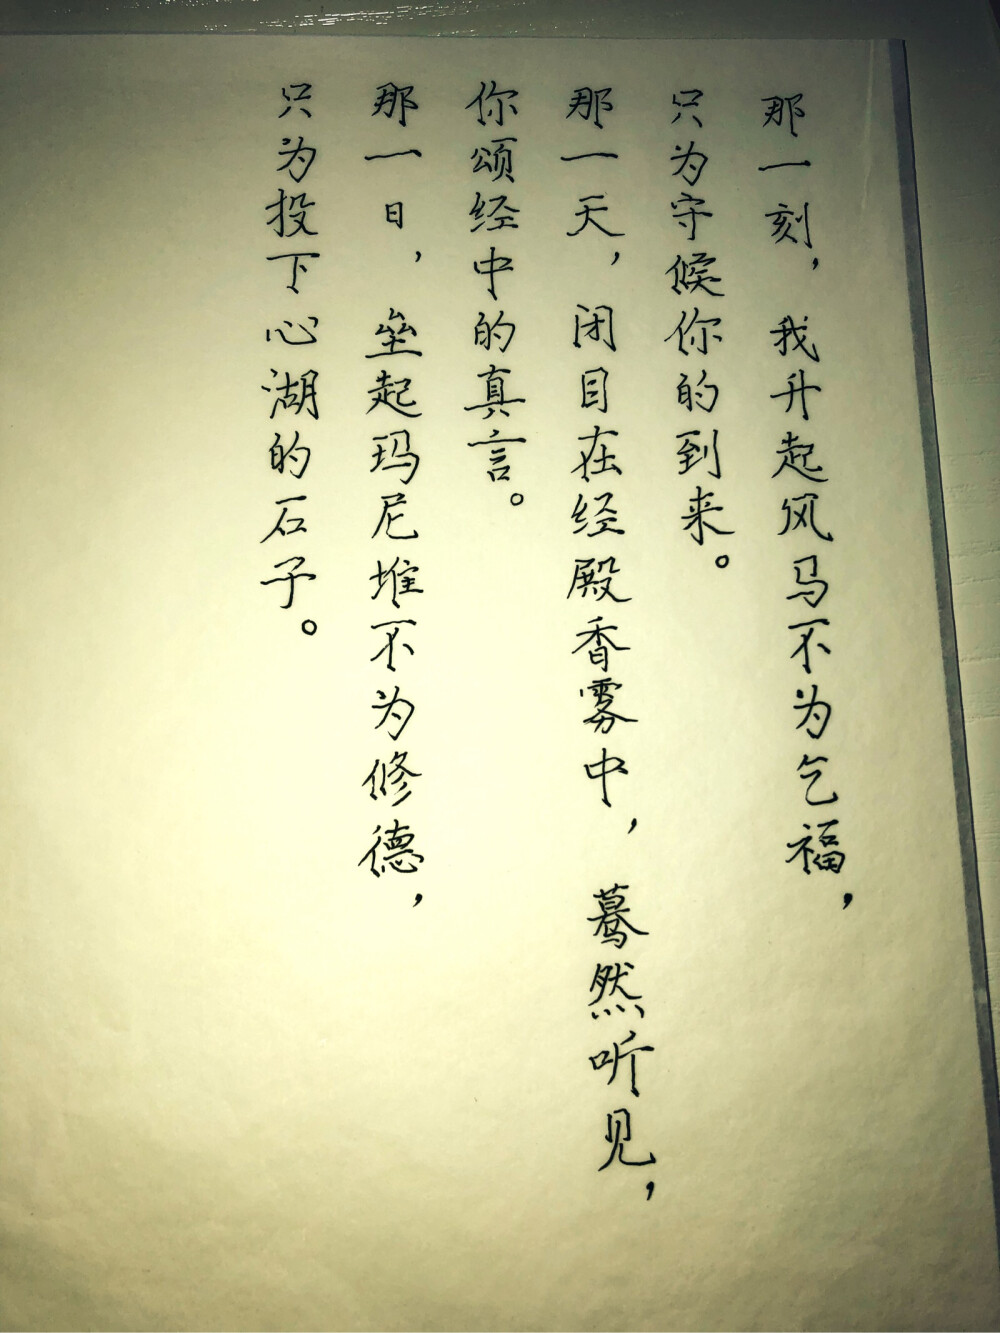 那一刻，我升起风马不为乞福，
只为守候你的到来。
那一天，闭目在经殿香雾中，蓦然听见，
你颂经中的真言。
那一日，垒起玛尼堆不为修德，
只为投下心湖的石子。